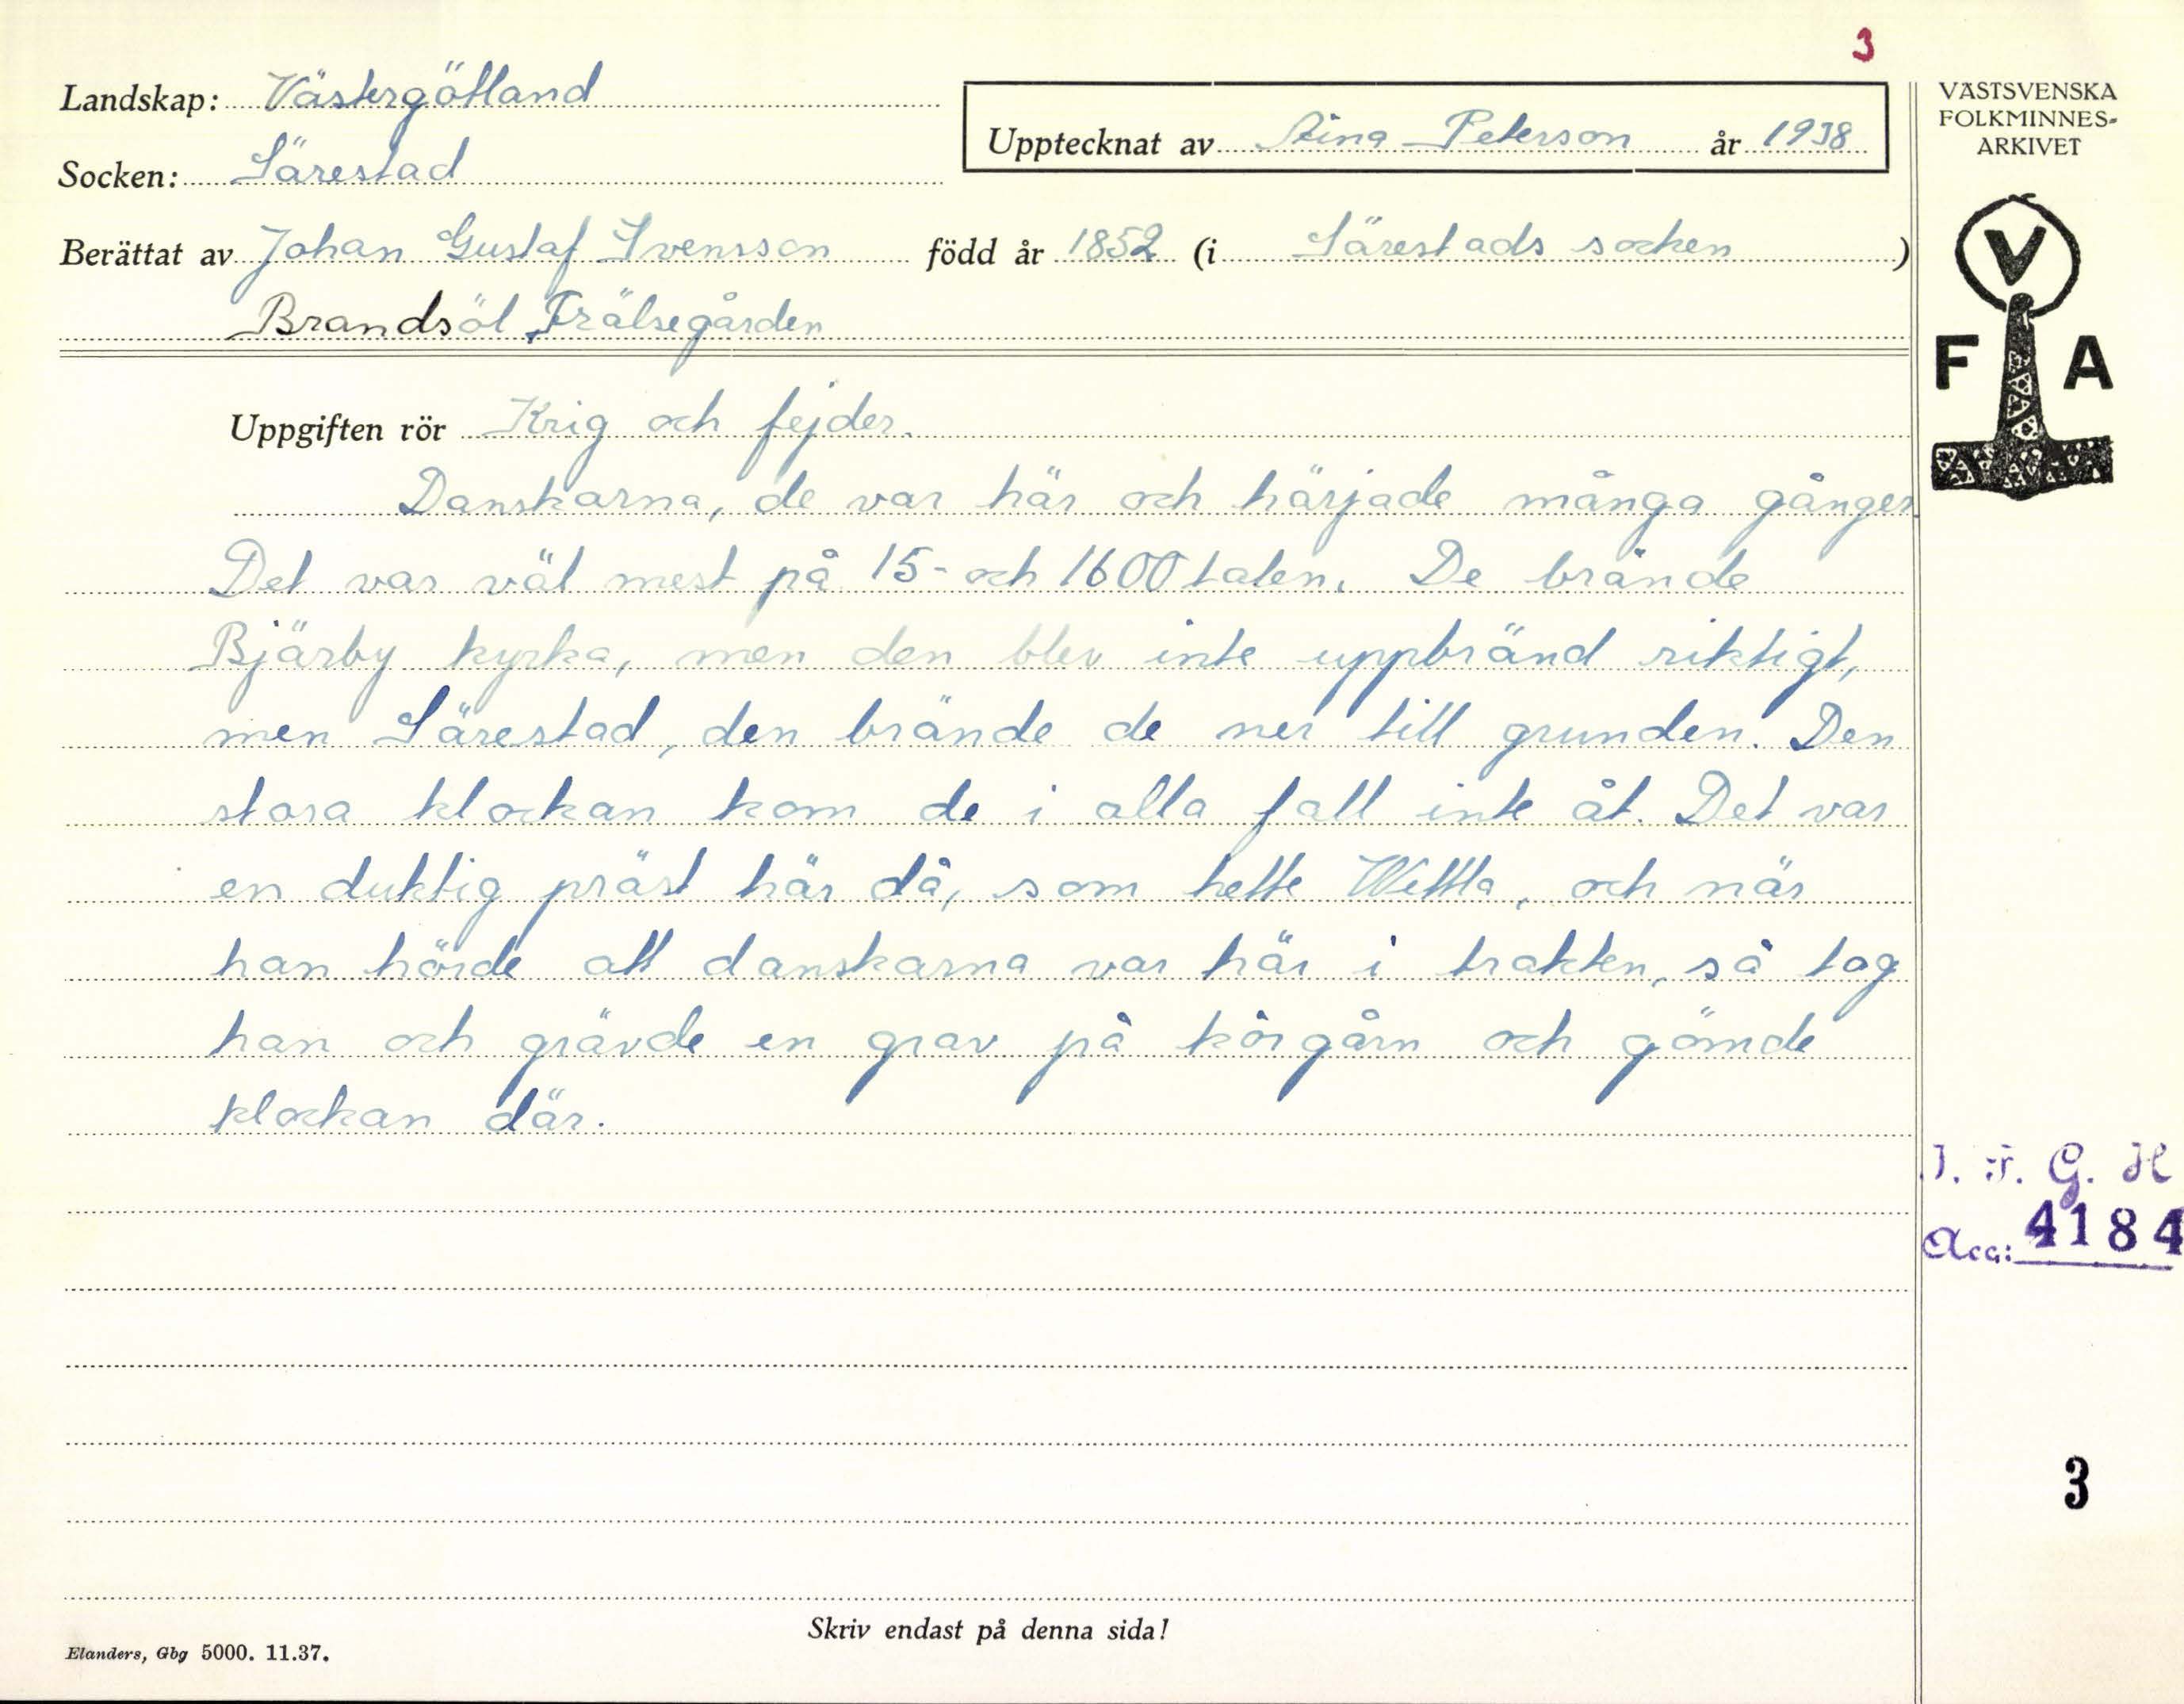 3
Landskap: Västergötland
Upptecknat av Aina Peterson år 1938
VÄSTSVENSKA
FOLKMINNES-
ARKIVET
Socken: Särestad
Berättat av Johan Gustaf Svensson född år 1852 (i Särestads socken)
Brandsöl Frälsegården
V
F A
Uppgiften rör Krig och fejder.
Danskarna, de var här och härjade många gånger
Det var väl mest på 15- och 1600 talen. De brände
Bjärby kyrka, men den blev inte uppbränd riktigt,
men Särestad, den brände de ner till grunden. Den
stora klockan kom de i alla fall inte åt. Det var
en duktig präst här då, som hette, och när
han hörde att danskarna var här i trakten, så tog
han och grävde en grav på körgårn och gömde
klockan där.
I. F. G. H
Acc: 4184
3
Skriv endast på denna sida!
Elanders, Gbg 5000. 11.37.